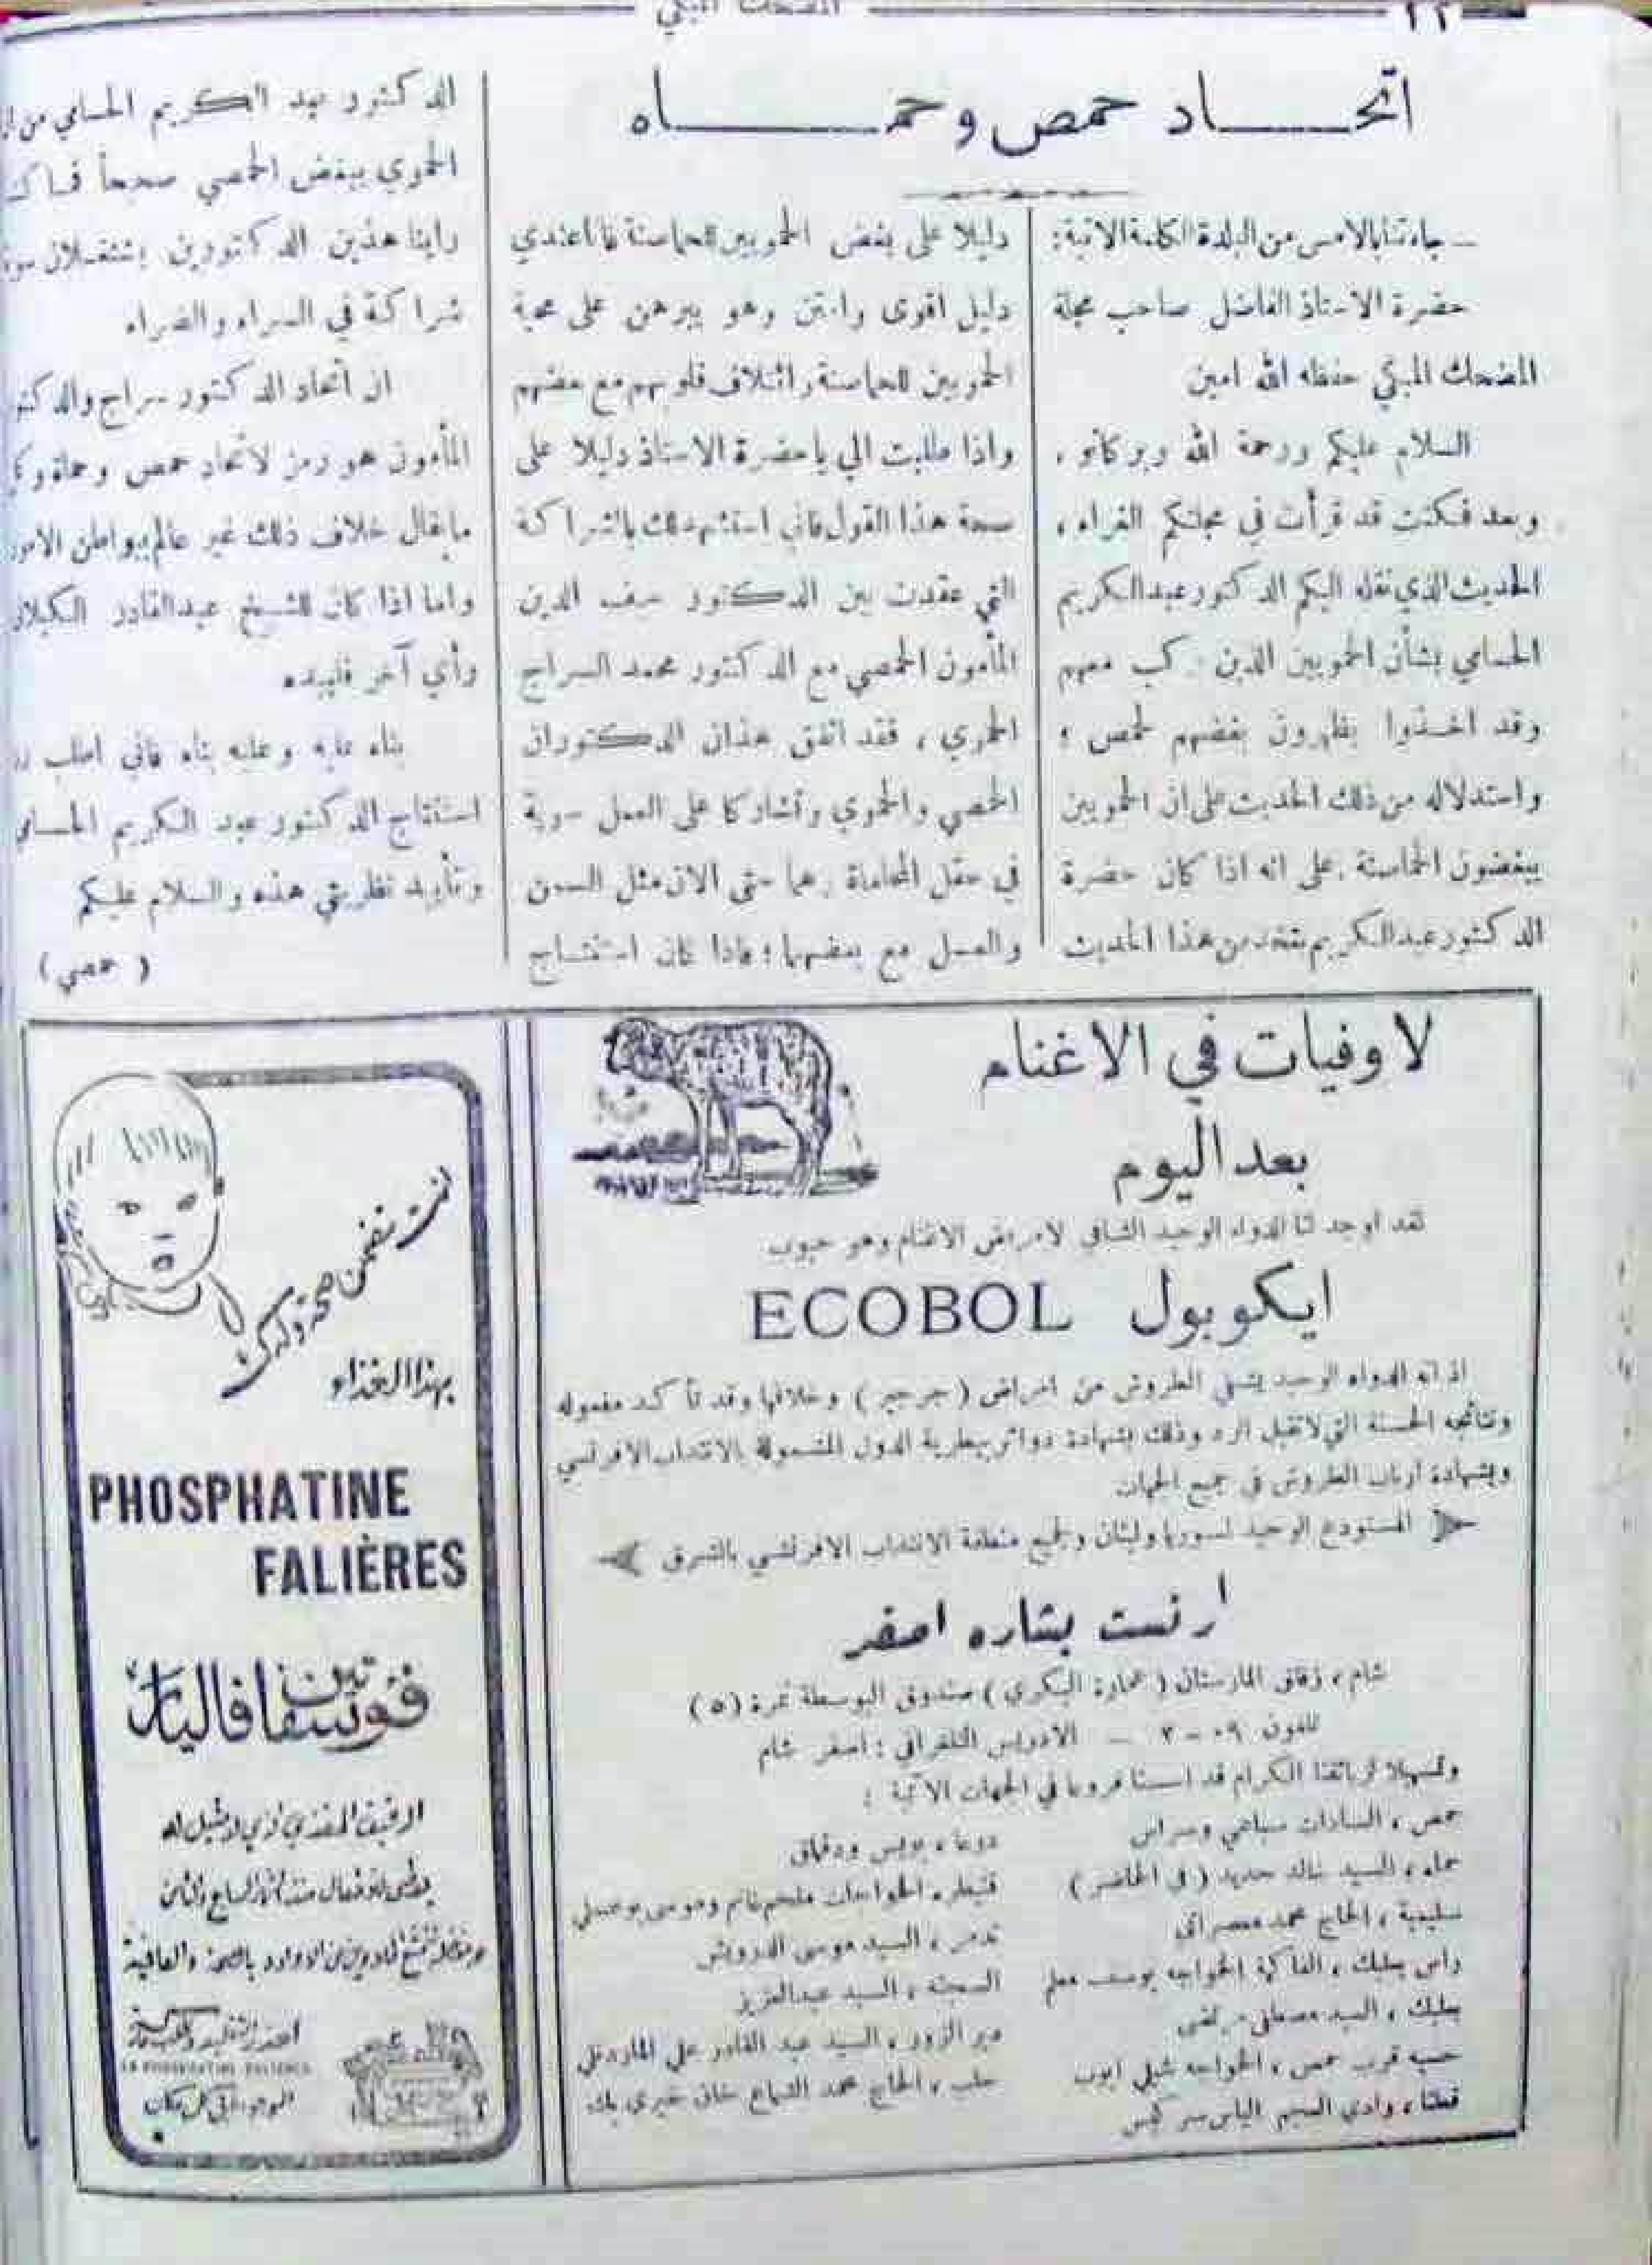 المضحك المبكي
٢٢
اتحـــاد حمص وحمـــاه
ـ جاءتنا بالامس من البلدة الكلمة الاتية:
حضرة الاستاذ الفاضل صاحب مجلة
المضحك المبكي حفظه الله امين
السلام عليكم ورحمة الله وبركاته ،
وبعد فكنت قد قرأت في مجلتكم الغراء ،
الحديث الذي نقله اليكم الدكتور عبدالكريم
الحسامي بشأن الحمويين الذين ركب معهم
وقد اخذوا يظهرون بغضهم لحمص ؛
واستدلاله من ذلك الحديث على ان الحمويين
يبغضون الحماصنة . على انه اذا كان حضرة
الدكتور عبدالكريم يتخذ من هذا الحديث
دليلا على بغض الحمويين للحماصنة فانا عندي
دليل اقوى وامتن وهو يبرهن على محبة
الحمويين للحماصنة وائتلاف قلوبهم مع بعضهم
واذا طلبت الي يا حضرة الاستاذ دليلا على
صحة هذا القول فاني استشهد لك بالشراكة
التي عقدت بين الدكتور سيف الدين
المأمون الحمصي مع الدكتور محمد السراج
الحموي ، فقد اتفق هذان الدكتوران
الحمصي والحموي وتشاركا على العمل سوية
في حقل المحاماة وهما حتى الان مثل السمن
والعسل مع بعضهما ؛ فاذا كان استنتاج
الدكتور عبد الكريم الحسامي من
الحموي يبغض الحمصي صحيحاً فما كنا
راينا هذين الدكتورين يشتغلان سوية
شراكة في السراء والضراء
ان اتحاد الدكتور سراج والدكتور
المأمون هو رمز لاتحاد حمص وحماة
ما يقال خلاف ذلك غير عالم ببواطن الامور
واما اذا كان للشيخ عبدالقادر الكيلاني
رأي آخر فليبده
بناء عليه وعليه بناء فاني اطلب رد
استنتاج الدكتور عبد الكريم الحسامي
وتأييد نظريتي هذه والسلام عليكم
( حمصي )
لا وفيات في الاغنام
بعد اليوم
لقد اوجد لنا الدواء الوحيد الشافي لامراض الاغنام وهو حبوب
ايكوبول ECOBOL
اذ انه الدواء الوحيد يشفي الطروش من امراض ( جرجير ) وخلافها وقد تأكد مفعوله
ونتائجه الحسنة التي لا تقبل الرد وذلك بشهادة دوائر بيطرية الدول المشمولة بالانتداب الافرنسي
وبشهادة ارباب الطروش في جميع الجهات
المستودع الوحيد لسوريا ولبنان ولجميع منطقة الانتداب الافرنسي بالشرق
ارنست بشاره اصفر
شام ، زقاق المارستان ( عمارة البكري ) صندوق البوسطة نمرة (٥)
تلفون ٠٩ - ٢ — الادريس التلغرافي : اصفر شام
وتسهيلا لزبائننا الكرام قد اسسنا فروعا في الجهات الآتية :
حمص ، السادات سباهي
حماه ، السيد خالد حديد ( في الحاضر )
سليمية ، الحاج محمد
راس بعلبك ، الفاكهة الخواجه يوسف معلم
بعلبك ، السيد مصطفى
حسيه قرب حمص ، الخواجه شبلي ايوب
قطنا ، وادي العجم الياس سركيس
دوما ، بولس ودقاق
قنيطره الخواجات ملحم غانم
تدمر ، السيد موسى الدرويش
السخنه ، السيد عبدالعزيز
دير الزور ، السيد عبد القادر علي
حلب ، الحاج محمد الشماع خان خيري بك
انت تضمن صحة ولدك
بهذا الغذاء
PHOSPHATINE
FALIÈRES
فوسفاتين فاليار
الدقيق المغذي الذي لا مثيل له
يعطى للاطفال منذ الشهر السابع والثامن
احذر التقليد
LA PHOSPHATINE FALIÈRES
الموجودة في كل مكان